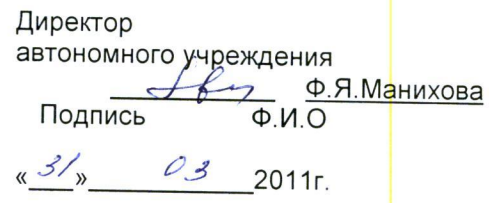 Директор
автономного учреждения
Ф.Я.Манихова
Подпись Ф.И.О
«31» 03 2011г.